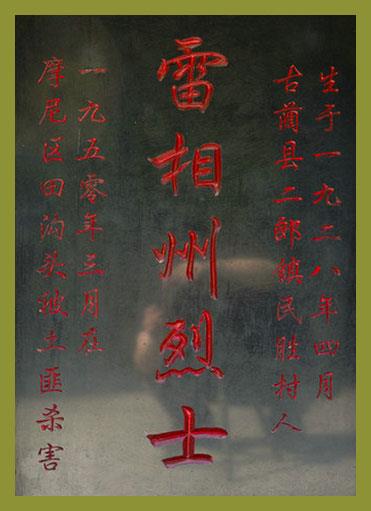 生于一九二八年四月
古蔺县二郎镇民胜村人
雷相州烈士
一九五零年三月在
摩尼区田沟头被土匪杀害